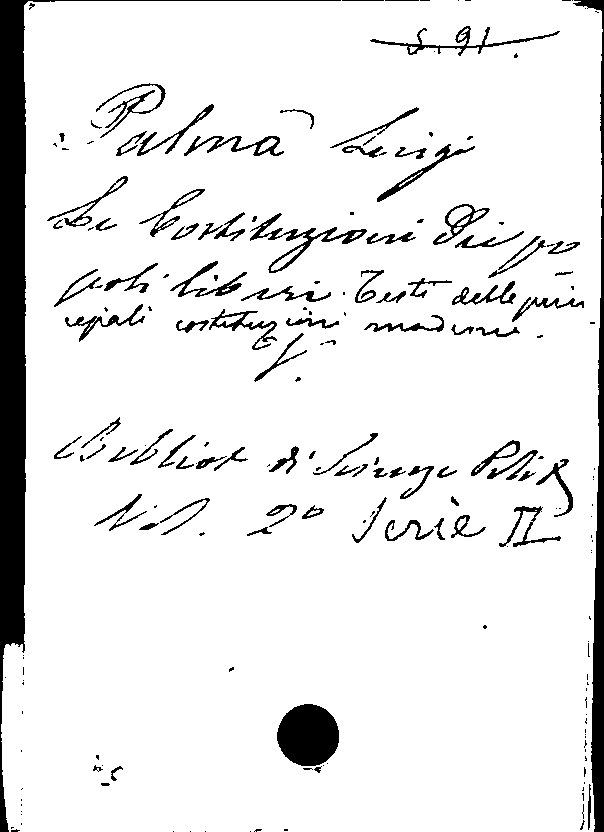 S. 91.
Palma Luigi
Le Costituzioni dei po
poli liberi. Testi delle prin
cipali costituzioni moderne.
V.
Bibliot di Scienze Polit
Vol. 2º Serie II